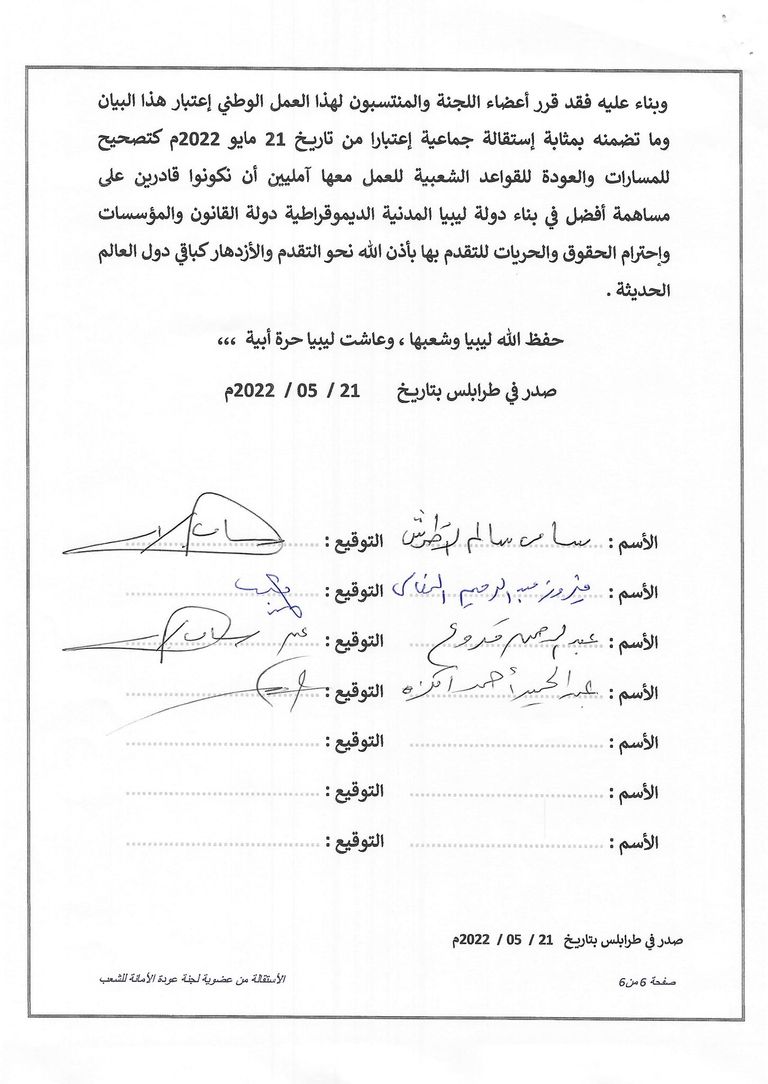 وبناء عليه فقد قرر أعضاء اللجنة والمنتسبون لهذا العمل الوطني إعتبار هذا البيان
وما تضمنه بمثابة إستقالة جماعية إعتبارا من تاريخ 21 مايو 2022م كتصحيح
للمسارات والعودة للقواعد الشعبية للعمل معها آمليين أن نكونوا قادرين على
مساهمة أفضل في بناء دولة ليبيا المدنية الديموقراطية دولة القانون والمؤسسات
وإحترام الحقوق والحريات للتقدم بها بأذن الله نحو التقدم والأزدهار كباقي دول العالم
الحديثة .
حفظ الله ليبيا وشعبها ، وعاشت ليبيا حرة أبية ،،،
صدر في طرابلس بتاريخ 21 / 05 / 2022م
الأسم : سامي سالم الأطرش التوقيع :
الأسم : فيروز عبد الرحيم التوقيع :
الأسم : عبد الرحمن قدوع التوقيع :
الأسم : عبد الحميد أحمد التوقيع :
الأسم : التوقيع :
الأسم : التوقيع :
الأسم : التوقيع :
صدر في طرابلس بتاريخ 21 / 05 / 2022م
صفحة 6 من 6 الأستقالة من عضوية لجنة عودة الأمانة للشعب